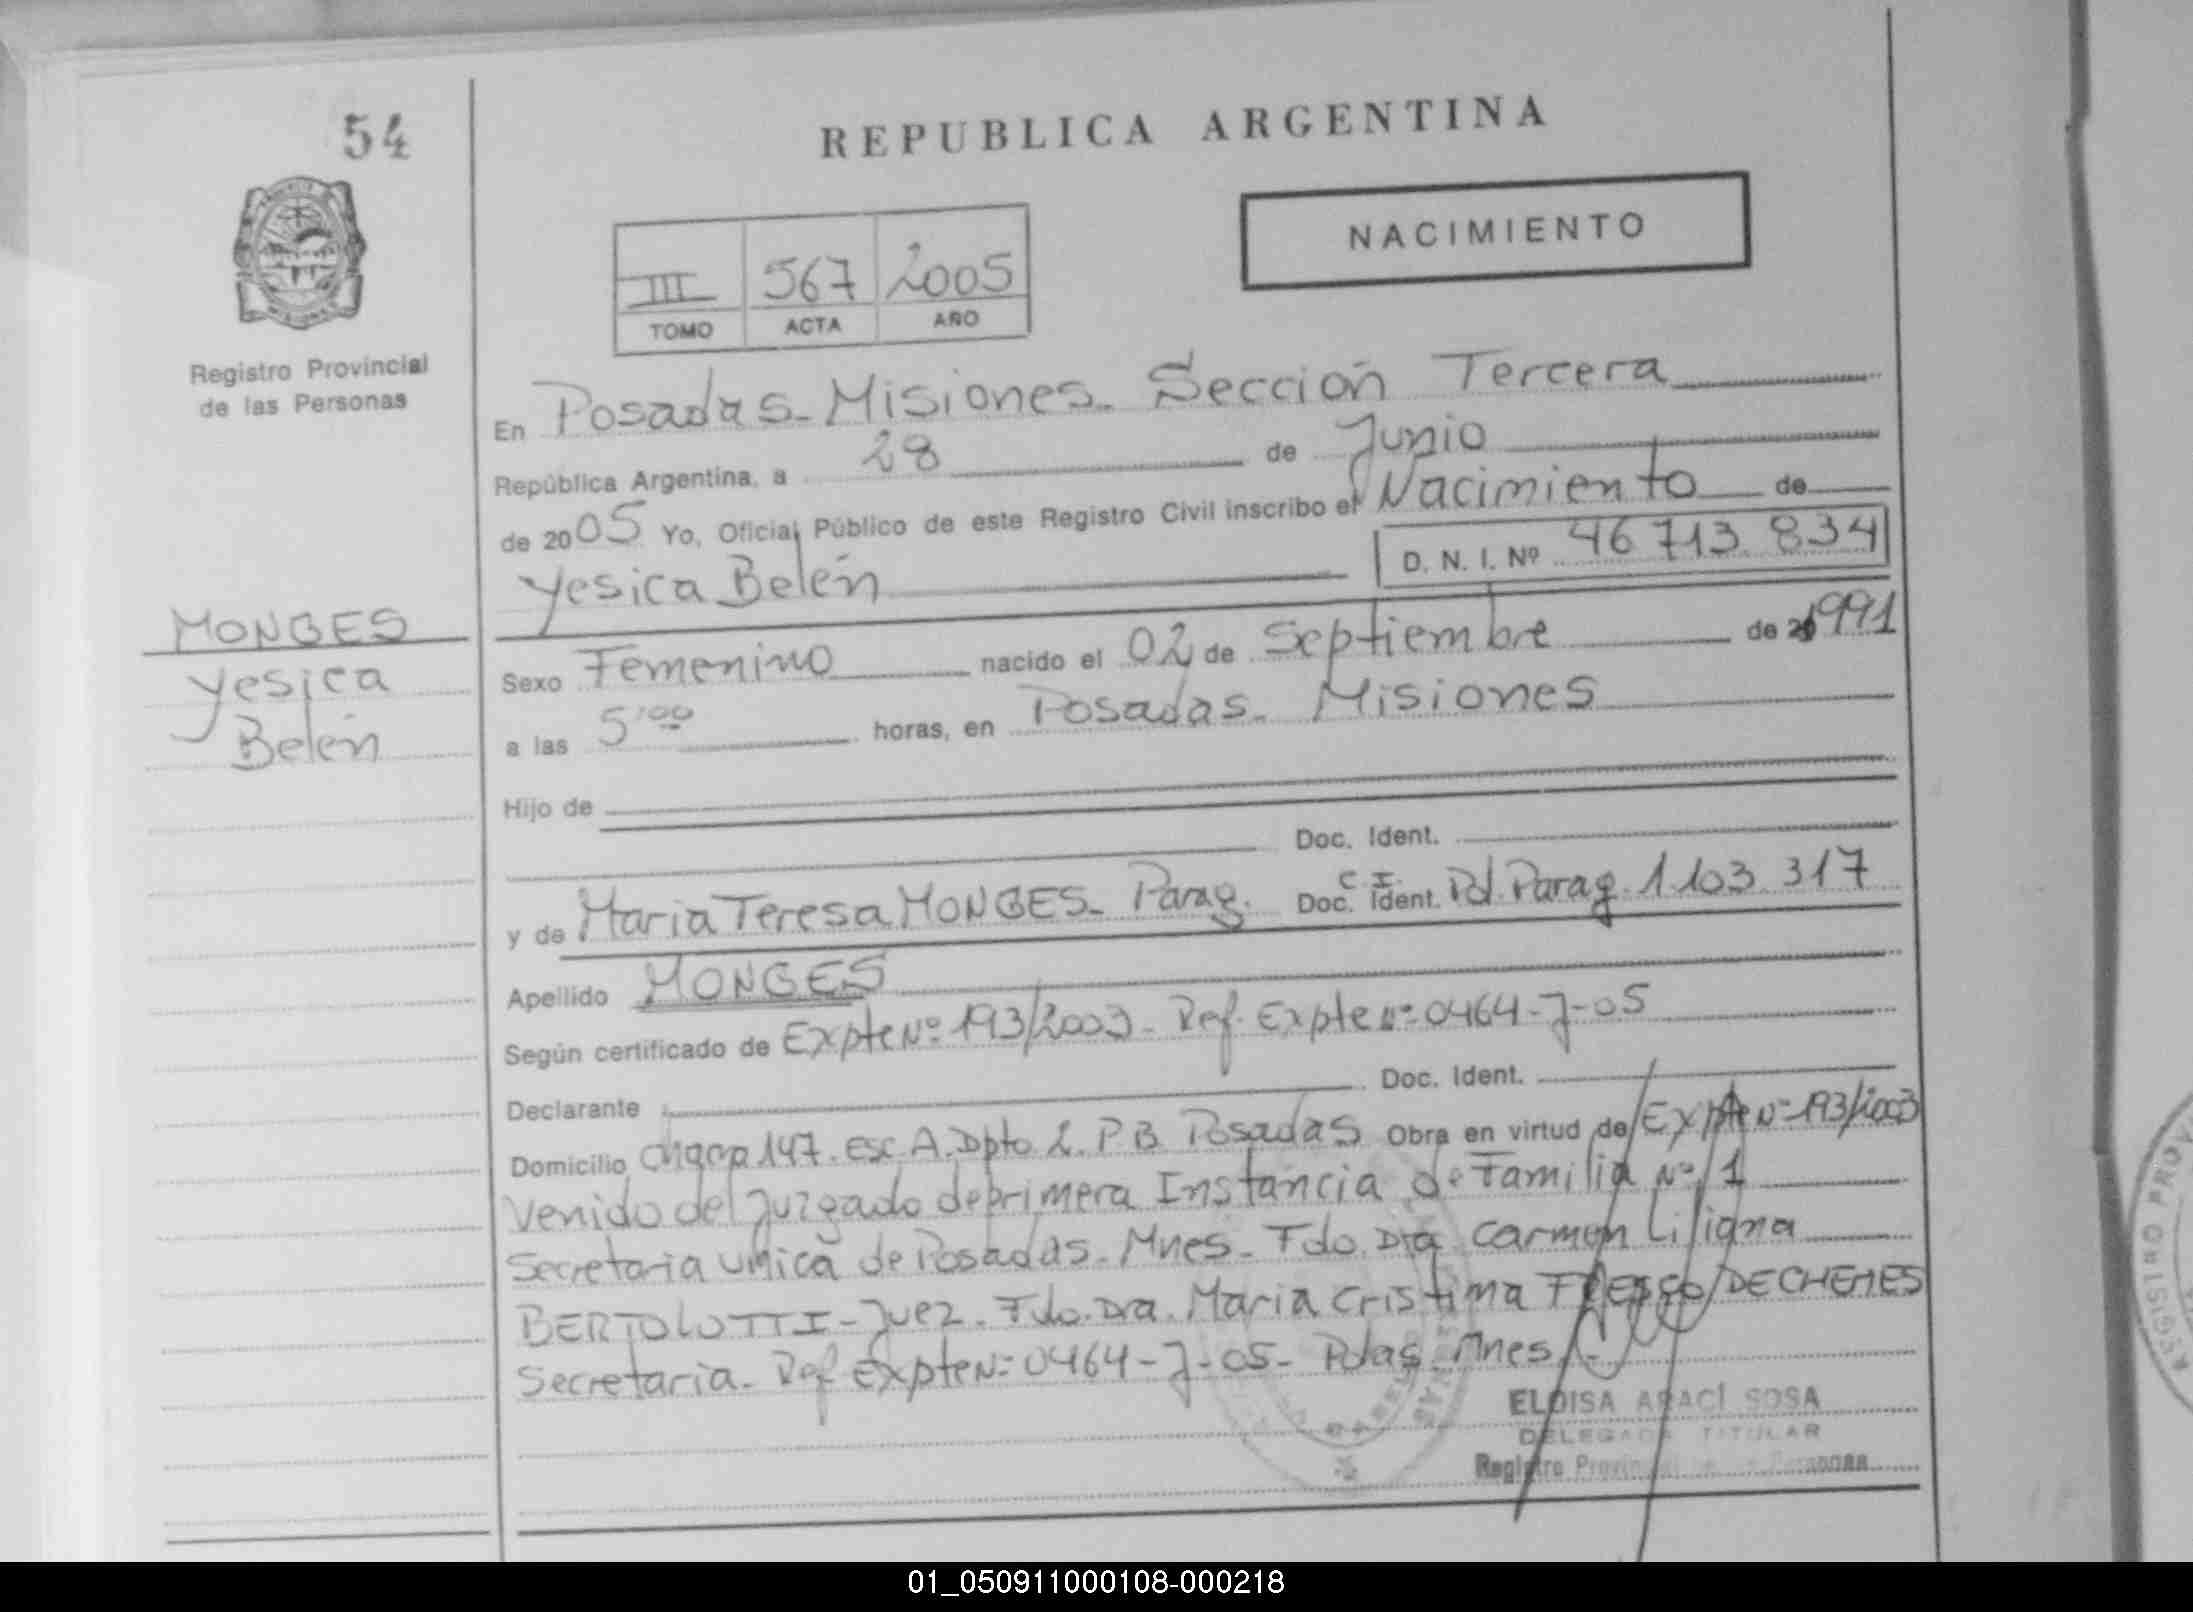 54
REPUBLICA ARGENTINA
NACIMIENTO
III 567 2005
TOMO ACTA AÑO
Registro Provincial
de las Personas
En Posadas - Misiones - Sección Tercera
República Argentina, a 28 de Junio
de 2005 Yo, Oficial Público de este Registro Civil inscribo el Nacimiento de
Yesica Belén D. N. I. Nº 46 713 834
MONGES
Yesica
Belén
Sexo Femenino nacido el 02 de Septiembre de 1991
a las 5'00 horas, en Posadas - Misiones
Hijo de
Doc. Ident.
y de Maria Teresa MONGES - Parag. C. I. Doc. Ident. Pol. Parag. 1.103.317
Apellido MONGES
Según certificado de Expte Nº 193/2003 - Ref. Expte Nº 0464-J-05
Declarante Doc. Ident.
Domicilio 147. Esc. A. Dpto 2. P.B Posadas Obra en virtud de Expte Nº 193/2003
Venido del Juzgado de primera Instancia de Familia Nº 1
Secretaria Unica de Posadas - Mnes - Fdo. Dra Carmen Liliana
BERTOLOTTI - Juez - Fdo. Dra. Maria Cristina DECHEMES
Secretaria - Ref Expte Nº 0464-J-05 - Pdas. Mnes.
ELOISA ARACÍ SOSA
DELEGADA TITULAR
Registro Provincial de las Personas
01_050911000108-000218